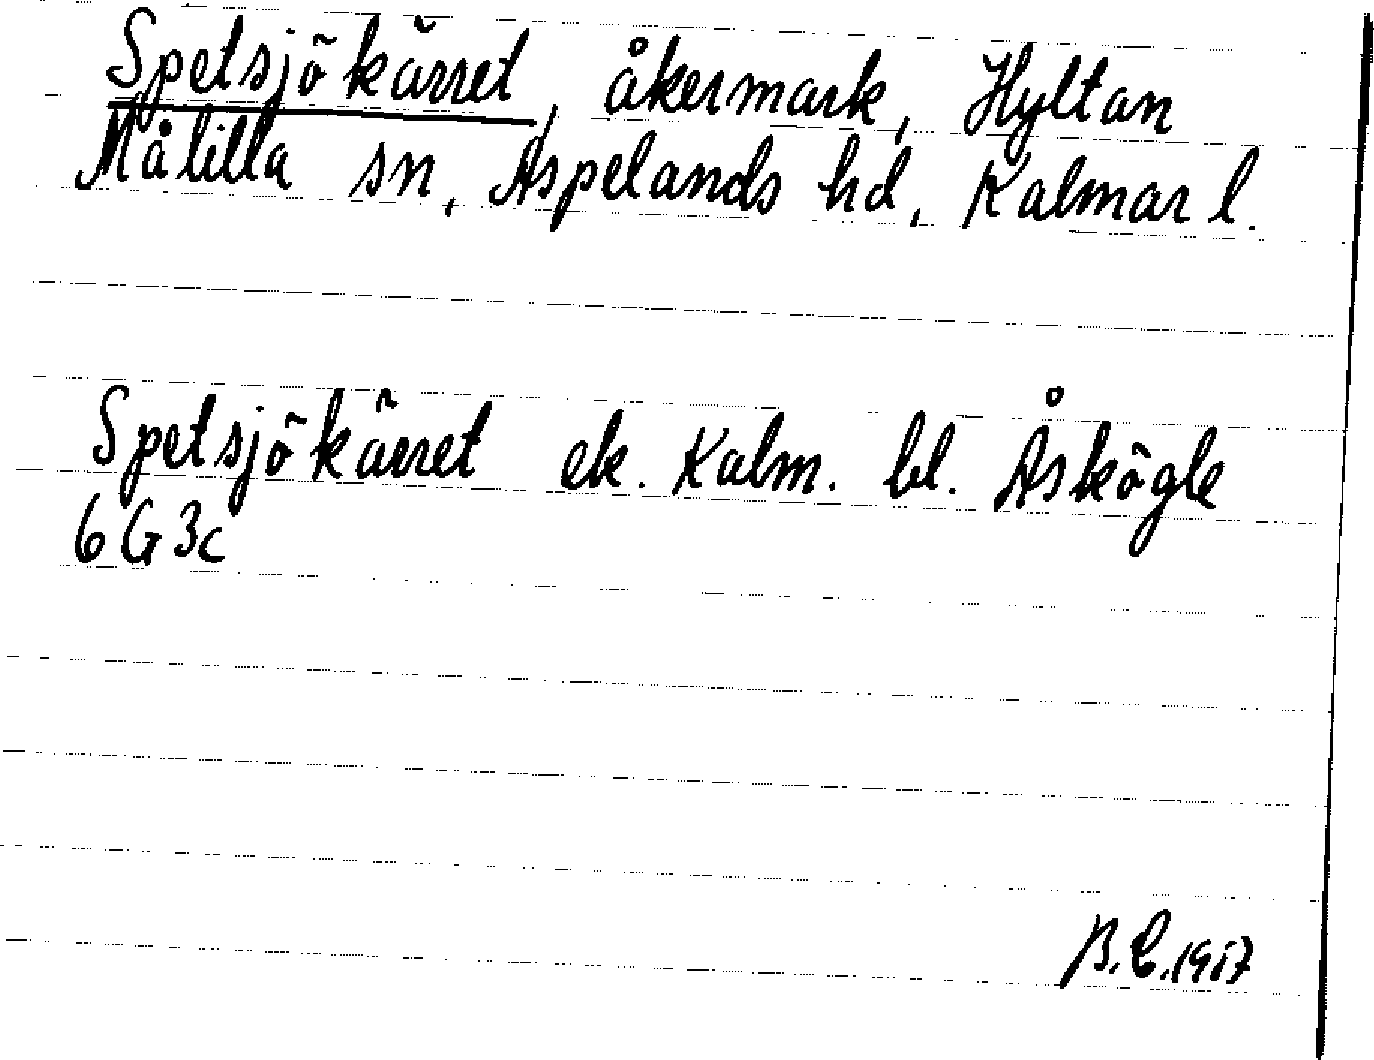 Spetsjökärret, åkermark, Hyltan
Målilla sn, Aspelands hd, Kalmar l.
Spetsjökärret ek. Kalm. bl. Åskögle
6G3c